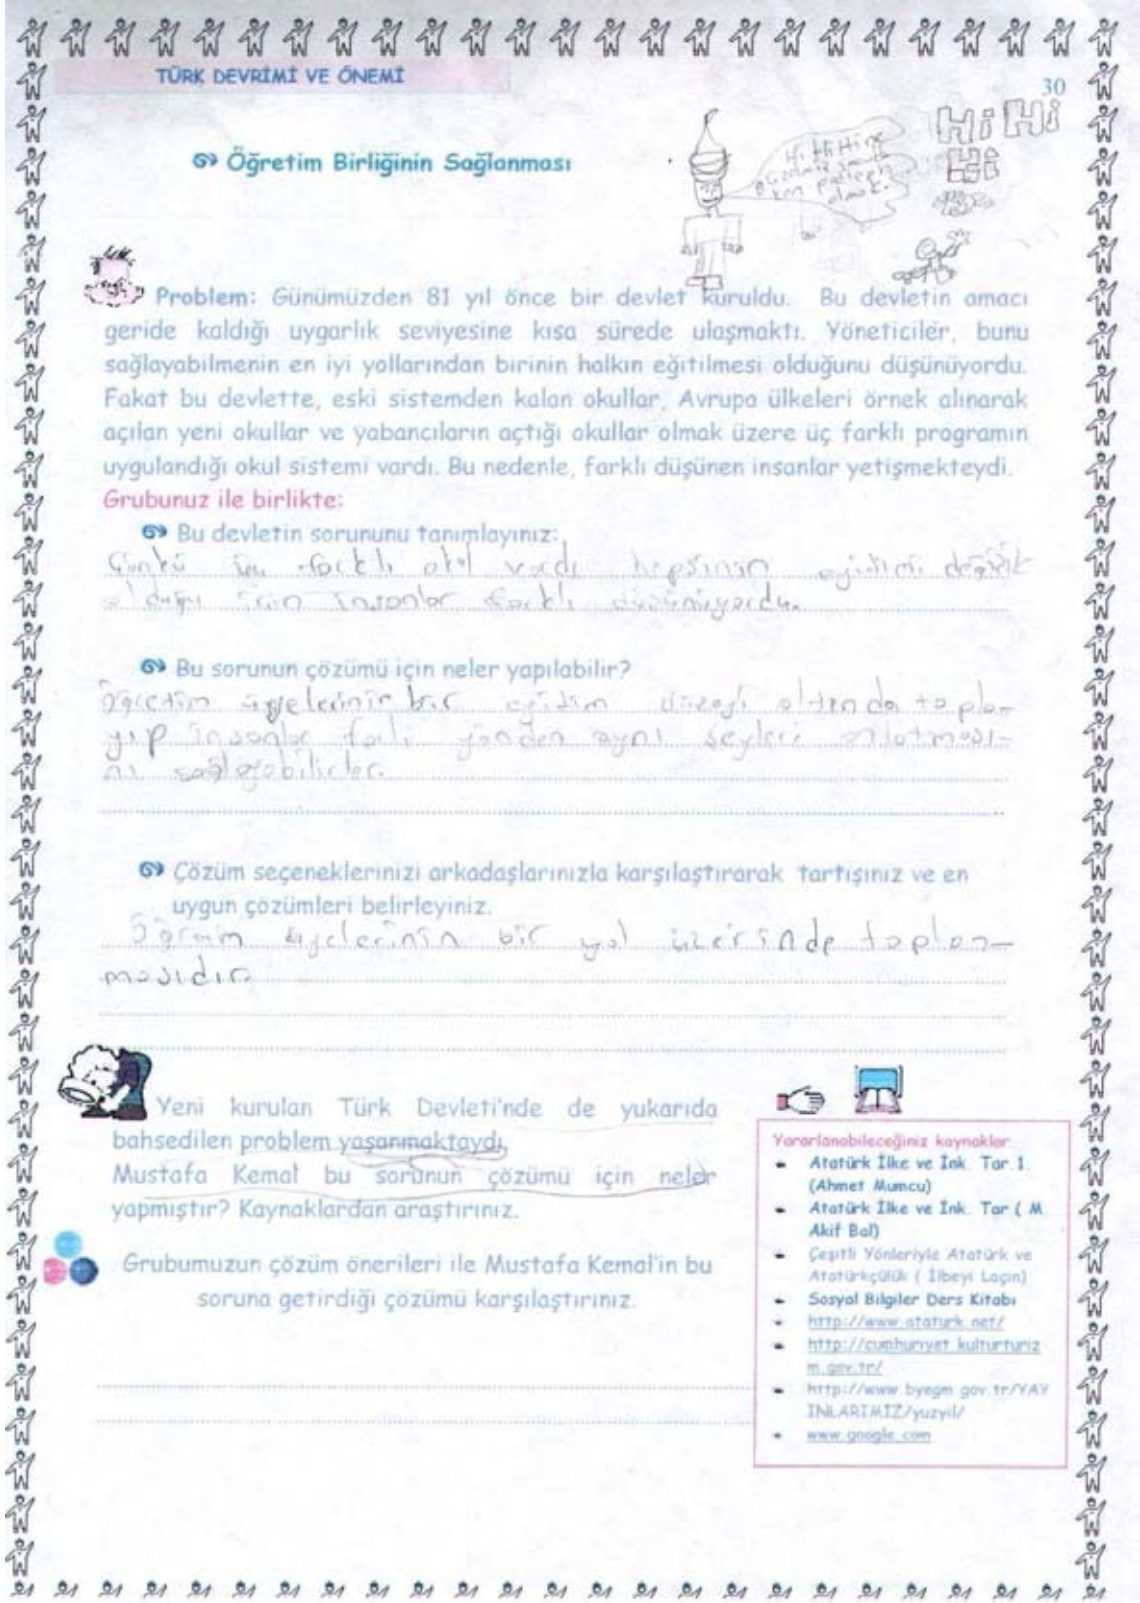 TÜRK DEVRİMİ VE ÖNEMİ
30
Hi Hi
Hi
Hi Hi Hi
olmak.
Öğretim Birliğinin Sağlanması
Problem: Günümüzden 81 yıl önce bir devlet kuruldu. Bu devletin amacı
geride kaldığı uygarlık seviyesine kısa sürede ulaşmaktı. Yöneticiler, bunu
sağlayabilmenin en iyi yollarından birinin halkın eğitilmesi olduğunu düşünüyordu.
Fakat bu devlette, eski sistemden kalan okullar, Avrupa ülkeleri örnek alınarak
açılan yeni okullar ve yabancıların açtığı okullar olmak üzere üç farklı programın
uygulandığı okul sistemi vardı. Bu nedenle, farklı düşünen insanlar yetişmekteydi.
Grubunuz ile birlikte:
Bu devletin sorununu tanımlayınız:
Çünkü üç farklı okul vardı hepsinin eğitimi değişik
olduğu için insanlar farklı düşünüyordu.
Bu sorunun çözümü için neler yapılabilir?
Öğretim üyelerinin bir eğitim düzeyi altında topla-
yıp insanlar yönden aynı şeyleri anlatması-
nı sağlayabilirler.
Çözüm seçeneklerinizi arkadaşlarınızla karşılaştırarak tartışınız ve en
uygun çözümleri belirleyiniz.
üyelerinin bir yol üzerinde toplan-
masıdır
Yeni kurulan Türk Devleti'nde de yukarıda
bahsedilen problem yaşanmaktaydı.
Mustafa Kemal bu sorunun çözümü için neler
yapmıştır? Kaynaklardan araştırınız.
Grubumuzun çözüm önerileri ile Mustafa Kemal'in bu
soruna getirdiği çözümü karşılaştırınız.
Yararlanabileceğiniz kaynaklar
Atatürk İlke ve İnk. Tar.1.
(Ahmet Mumcu)
Atatürk İlke ve İnk. Tar ( M.
Akif Bal)
Çeşitli Yönleriyle Atatürk ve
Atatürkçülük ( İlbeyi Laçin)
Sosyal Bilgiler Ders Kitabı
http://www.ataturk.net/
http://cumhuriyet.kulturturiz
m.gov.tr/
http://www.byegm.gov.tr/YAY
INLARIMIZ/yuzyil/
www.google.com